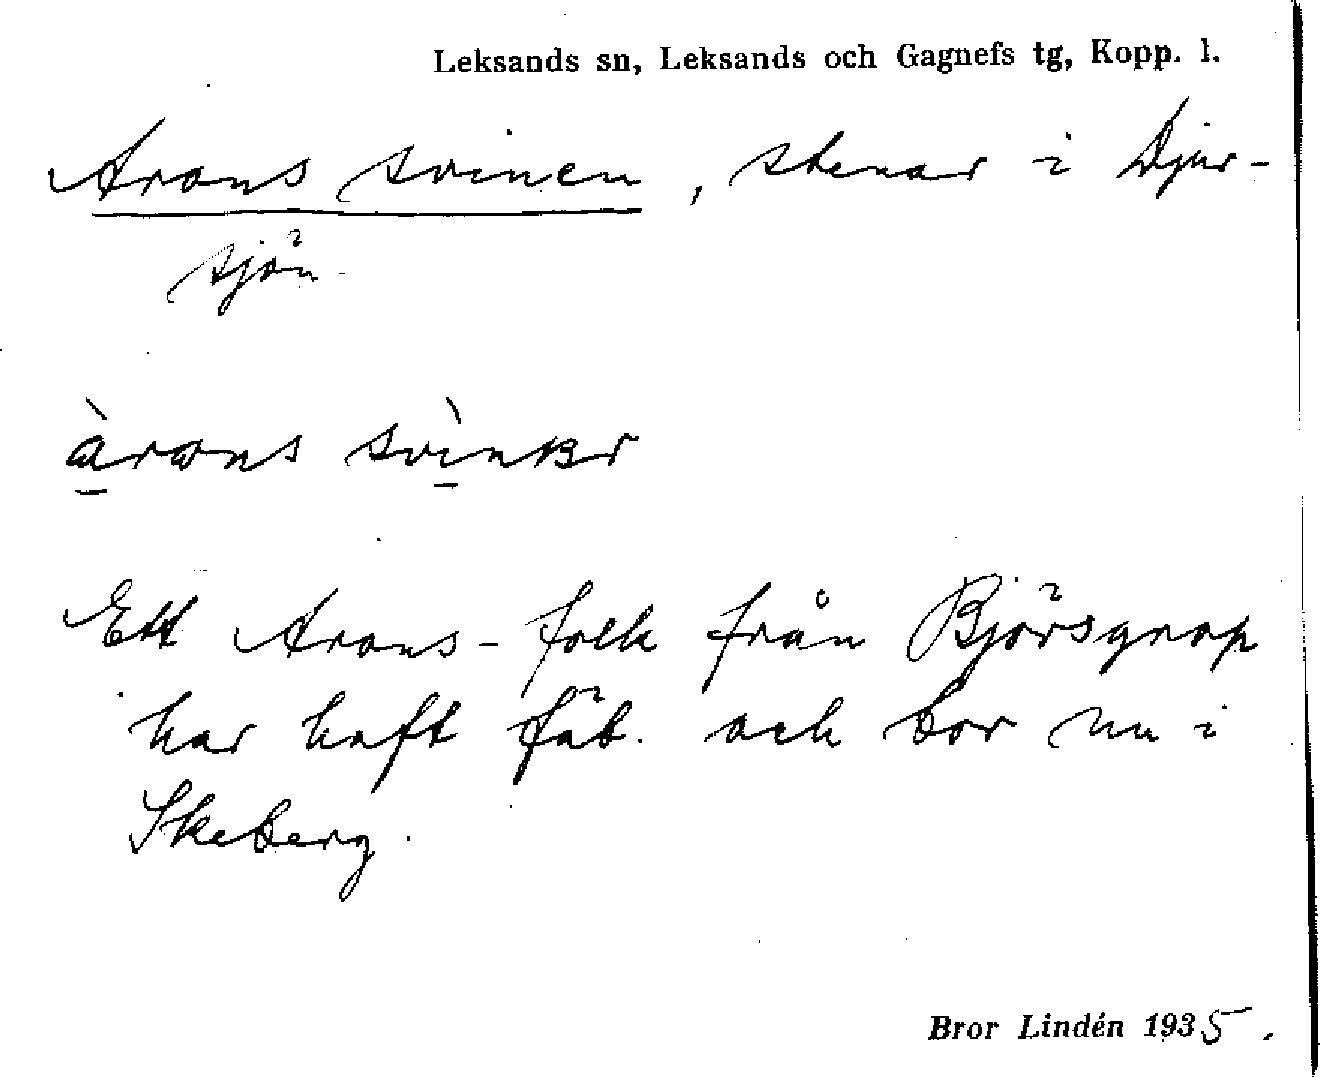 Leksands sn, Leksands och Gagnefs tg, Kopp. l.
Arons svinen, stenar i Djur-
sjön.
àrons svìnʙr
Ett Arons-folk från Björsgrap
har haft fäb. och bor nu i
Skeberg.
Bror Lindén 1935.